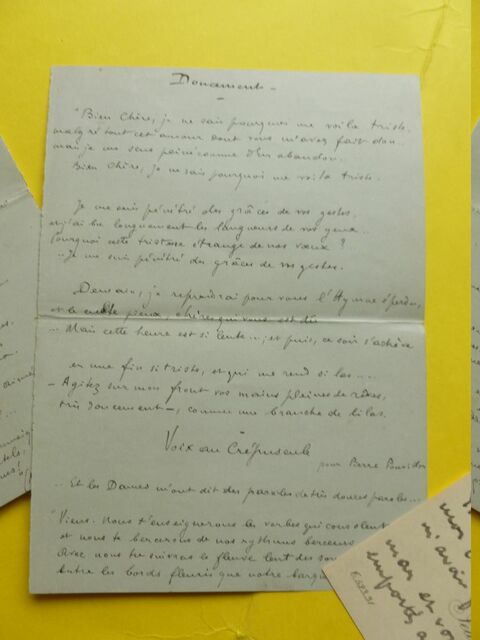 Doucement —
"Bien Chère, je ne sais pourquoi me voilà triste,
malgré tout cet amour dont vous m'avez fait don..
mais je me sens peiné comme d'un abandon..
Bien Chère, je ne sais pourquoi me voilà triste.
Je me suis pénétré des grâces de vos gestes,
et j'ai bu longuement les langueurs de vos yeux..
Pourquoi cette tristesse étrange de nos vœux ?
.. Je me suis pénétré des grâces de vos gestes.
Demain, je reprendrai pour vous l'Hymne éperdu,
et le culte pieux, chère, qui vous est dû
... Mais cette heure est si lente...; et puis, ce soir s'achève
en une fin si triste, et qui me rend si las....
— Agitez sur mon front vos mains pleines de rêves,
très doucement —, comme une branche de lilas.
Voix au Crépuscule
pour Pierre
.. Et les Dames m'ont dit des paroles de très douces paroles...
"Viens. Nous t'enseignerons les verbes qui consolent
et nous te bercerons de nos rythmes berceurs
Avec nous tu suivras le fleuve lent des
Entre les bords fleuris que notre
mon
m'avai
mon et vo
emportés